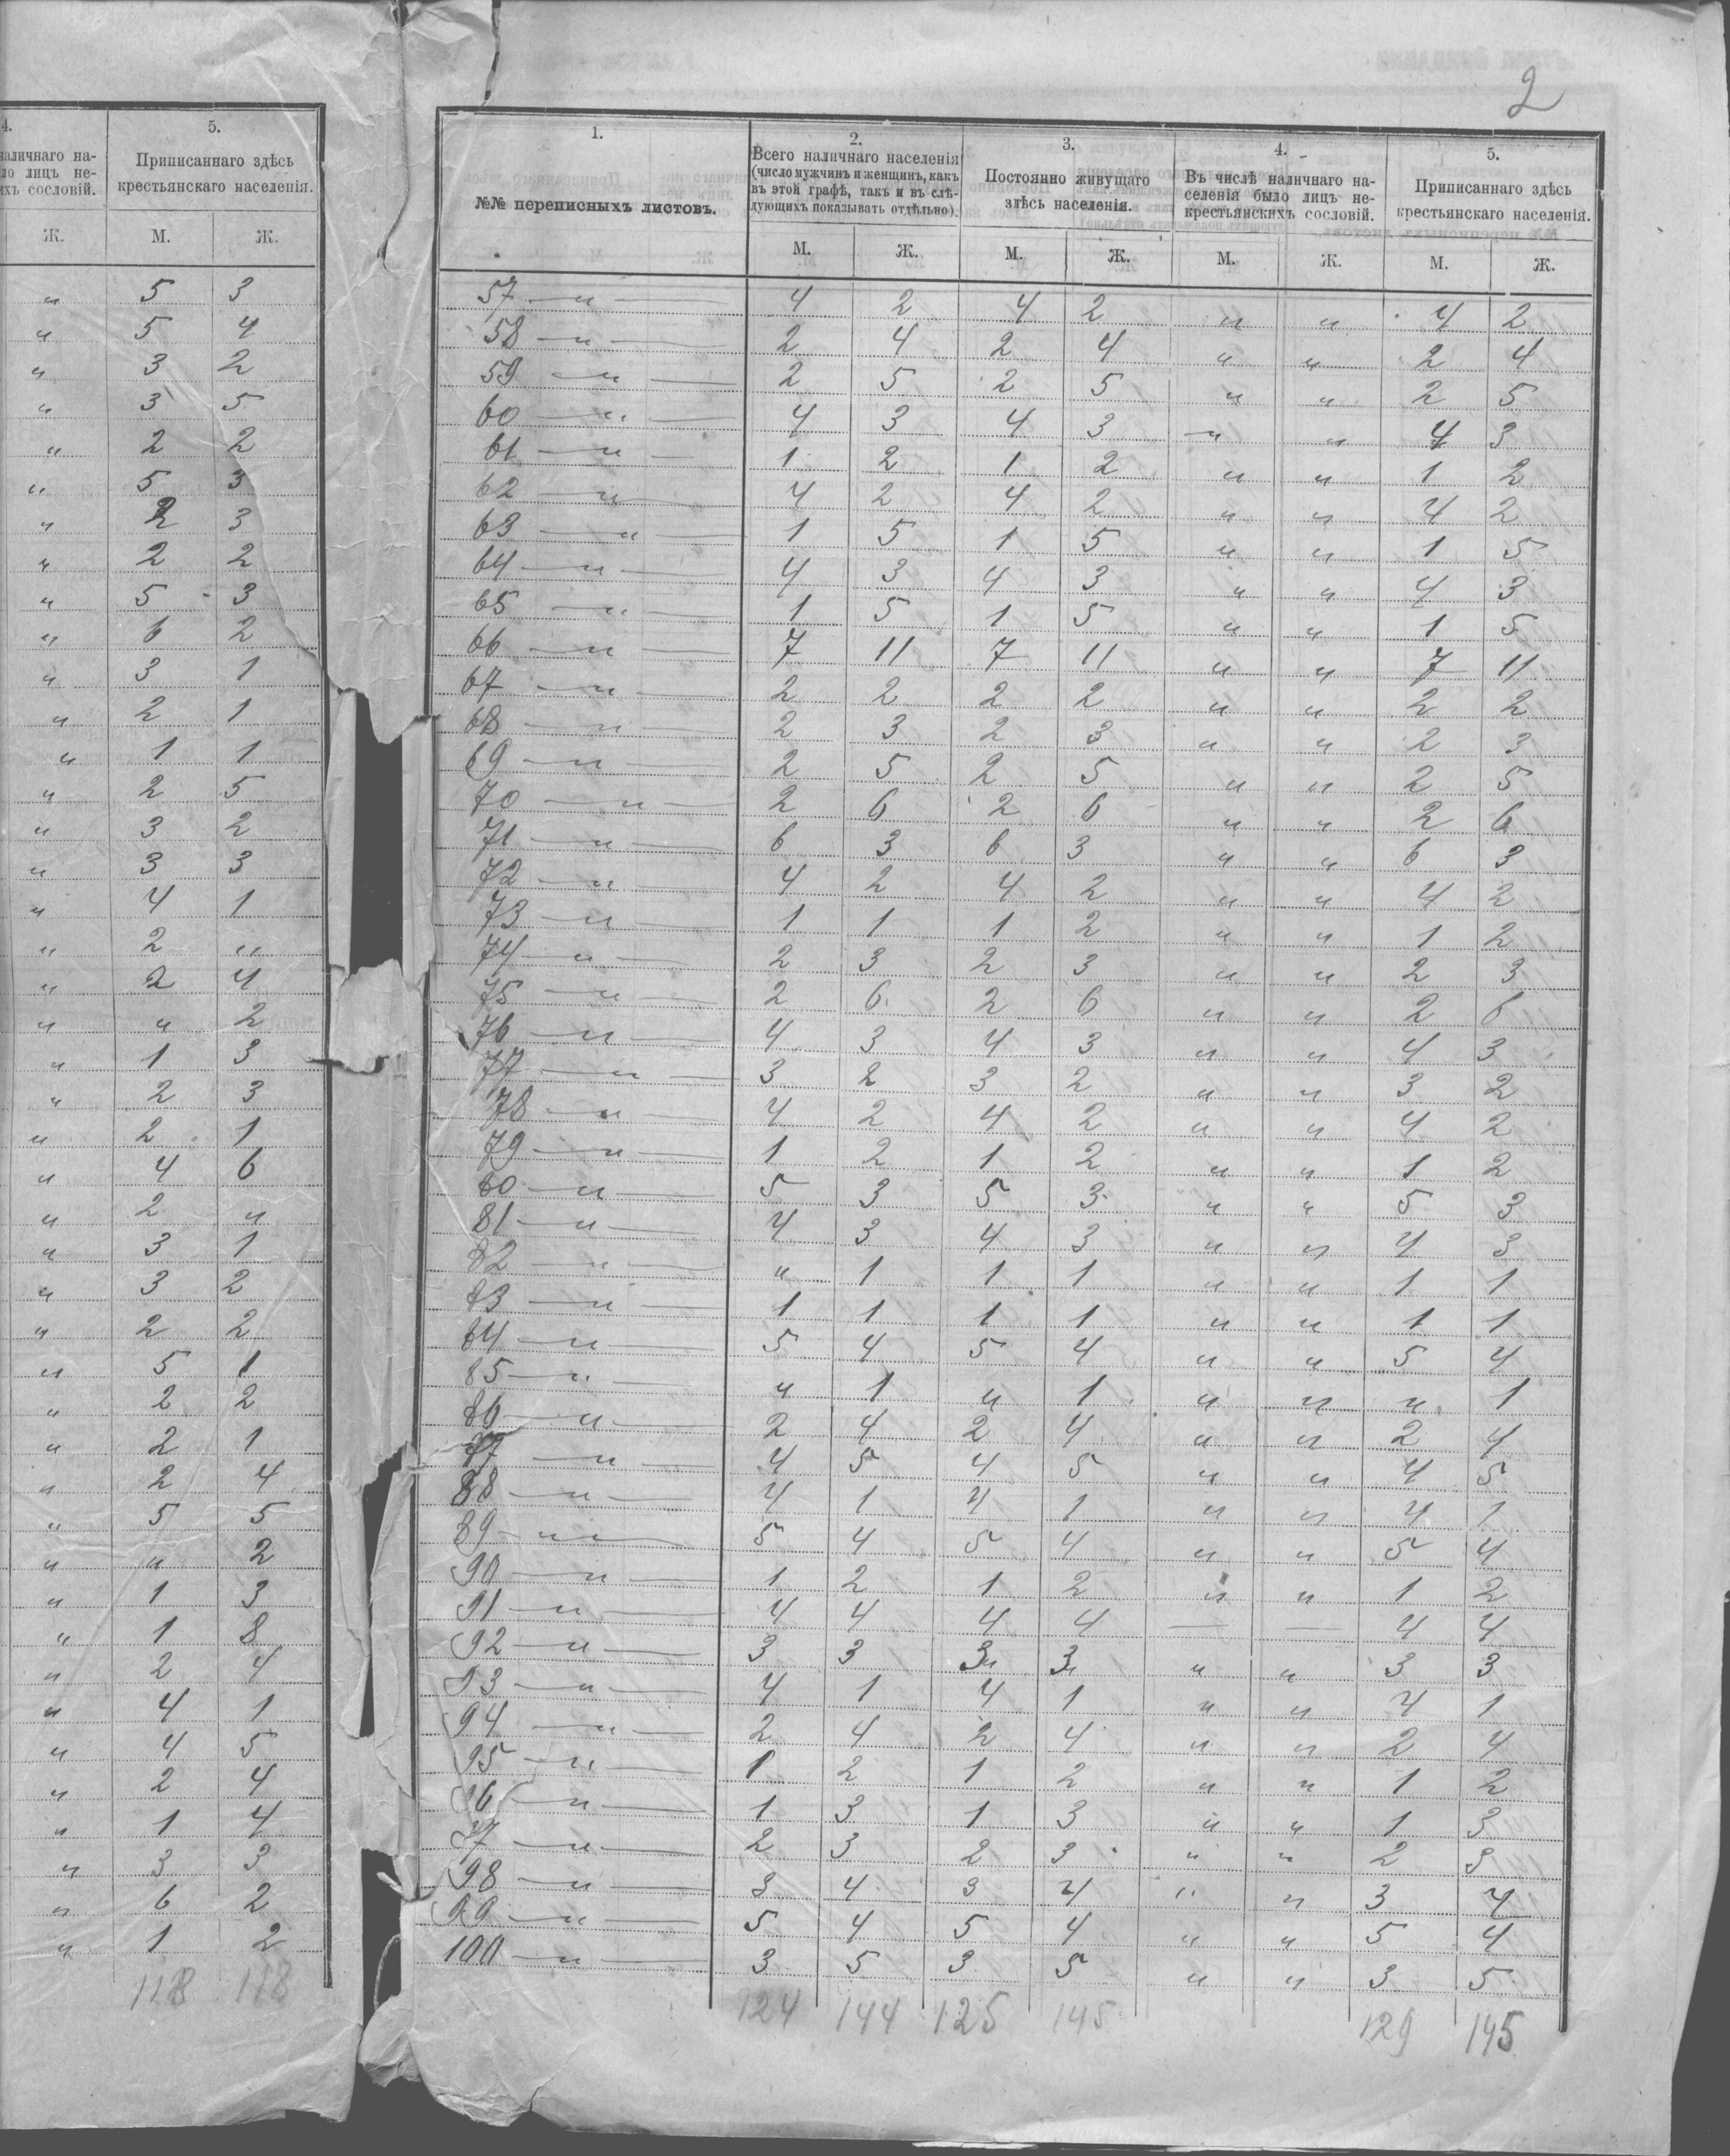 2
4. 5.
наличнаго на- Приписаннаго здѣсь
ло лицъ не- крестьянскаго населенія.
ихъ сословій.
Ж. М. Ж.
„ 5 3
„ 5 4
„ 3 2
„ 3 5
„ 2 2
„ 5 3
„ 2 3
„ 2 2
„ 5 3
„ 6 2
„ 3 1
„ 2 1
„ 1 1
„ 2 5
„ 3 2
„ 3 3
„ 4 1
„ 2 „
„ 2 4
„ „ 2
„ 1 3
„ 2 3
„ 2 1
„ 4 6
„ 2 „
„ 3 1
„ 3 2
„ 2 2
„ 5 1
„ 2 2
„ 2 1
„ 2 4
„ 5 5
„ „ 2
„ 1 3
„ 1 8
„ 2 4
„ 4 1
„ 4 5
„ 2 4
„ 1 4
„ 3 3
„ 6 2
„ 1 2
118 118
1. 2. 3. 4. 5.
№№ переписныхъ листовъ.
Всего наличнаго населенія
(число мужчинъ и женщинъ, какъ
въ этой графѣ, такъ и въ слѣ-
дующихъ показывать отдѣльно).
Постоянно живущаго
здѣсь населенія.
Въ числѣ наличнаго на-
селенія было лицъ не-
крестьянскихъ сословій.
Приписаннаго здѣсь
крестьянскаго населенія.
М. Ж. М. Ж. М. Ж. М. Ж.
57 — „ — 4 2 4 2 „ „ 4 2
58 — „ — 2 4 2 4 „ „ 2 4
59 — „ — 2 5 2 5 „ „ 2 5
60 — „ — 4 3 4 3 „ „ 4 3
61 — „ — 1 2 1 2 „ „ 1 2
62 — „ — 4 2 4 2 „ „ 4 2
63 — „ — 1 5 1 5 „ „ 1 5
64 — „ — 4 3 4 3 „ „ 4 3
65 — „ — 1 5 1 5 „ „ 1 5
66 — „ — 7 11 7 11 „ „ 7 11
67 — „ — 2 2 2 2 „ „ 2 2
68 — „ — 2 3 2 3 „ „ 2 3
69 — „ — 2 5 2 5 „ „ 2 5
70 — „ — 2 6 2 6 „ „ 2 6
71 — „ — 6 3 6 3 „ „ 6 3
72 — „ — 4 2 4 2 „ „ 4 2
73 — „ — 1 1 1 2 „ „ 1 2
74 — „ — 2 3 2 3 „ „ 2 3
75 — „ — 2 6 2 6 „ „ 2 6
76 — „ — 4 3 4 3 „ „ 4 3
77 — „ — 3 2 3 2 „ „ 3 2
78 — „ — 4 2 4 2 „ „ 4 2
79 — „ — 1 2 1 2 „ „ 1 2
80 — „ — 5 3 5 3 „ „ 5 3
81 — „ — 4 3 4 3 „ „ 4 3
82 — „ — „ 1 1 1 „ „ 1 1
83 — „ — 1 1 1 1 „ „ 1 1
84 — „ — 5 4 5 4 „ „ 5 4
85 — „ — „ 1 „ 1 „ „ „ 1
86 — „ — 2 4 2 4 „ „ 2 4
87 — „ — 4 5 4 5 „ „ 4 5
88 — „ — 4 1 4 1 „ „ 4 1
89 — „ — 5 4 5 4 „ „ 5 4
90 — „ — 1 2 1 2 „ „ 1 2
91 — „ — 4 4 4 4 — — 4 4
92 — „ — 3 3 3 3 „ „ 3 3
93 — „ — 4 1 4 1 „ „ 4 1
94 — „ — 2 4 2 4 „ „ 2 4
95 — „ — 1 2 1 2 „ „ 1 2
96 — „ — 1 3 1 3 „ „ 1 3
97 — „ — 2 3 2 3 „ „ 2 3
98 — „ — 3 4 3 4 „ „ 3 4
99 — „ — 5 4 5 4 „ „ 5 4
100 — „ — 3 5 3 5 „ „ 3 5
124 144 125 145 129 145